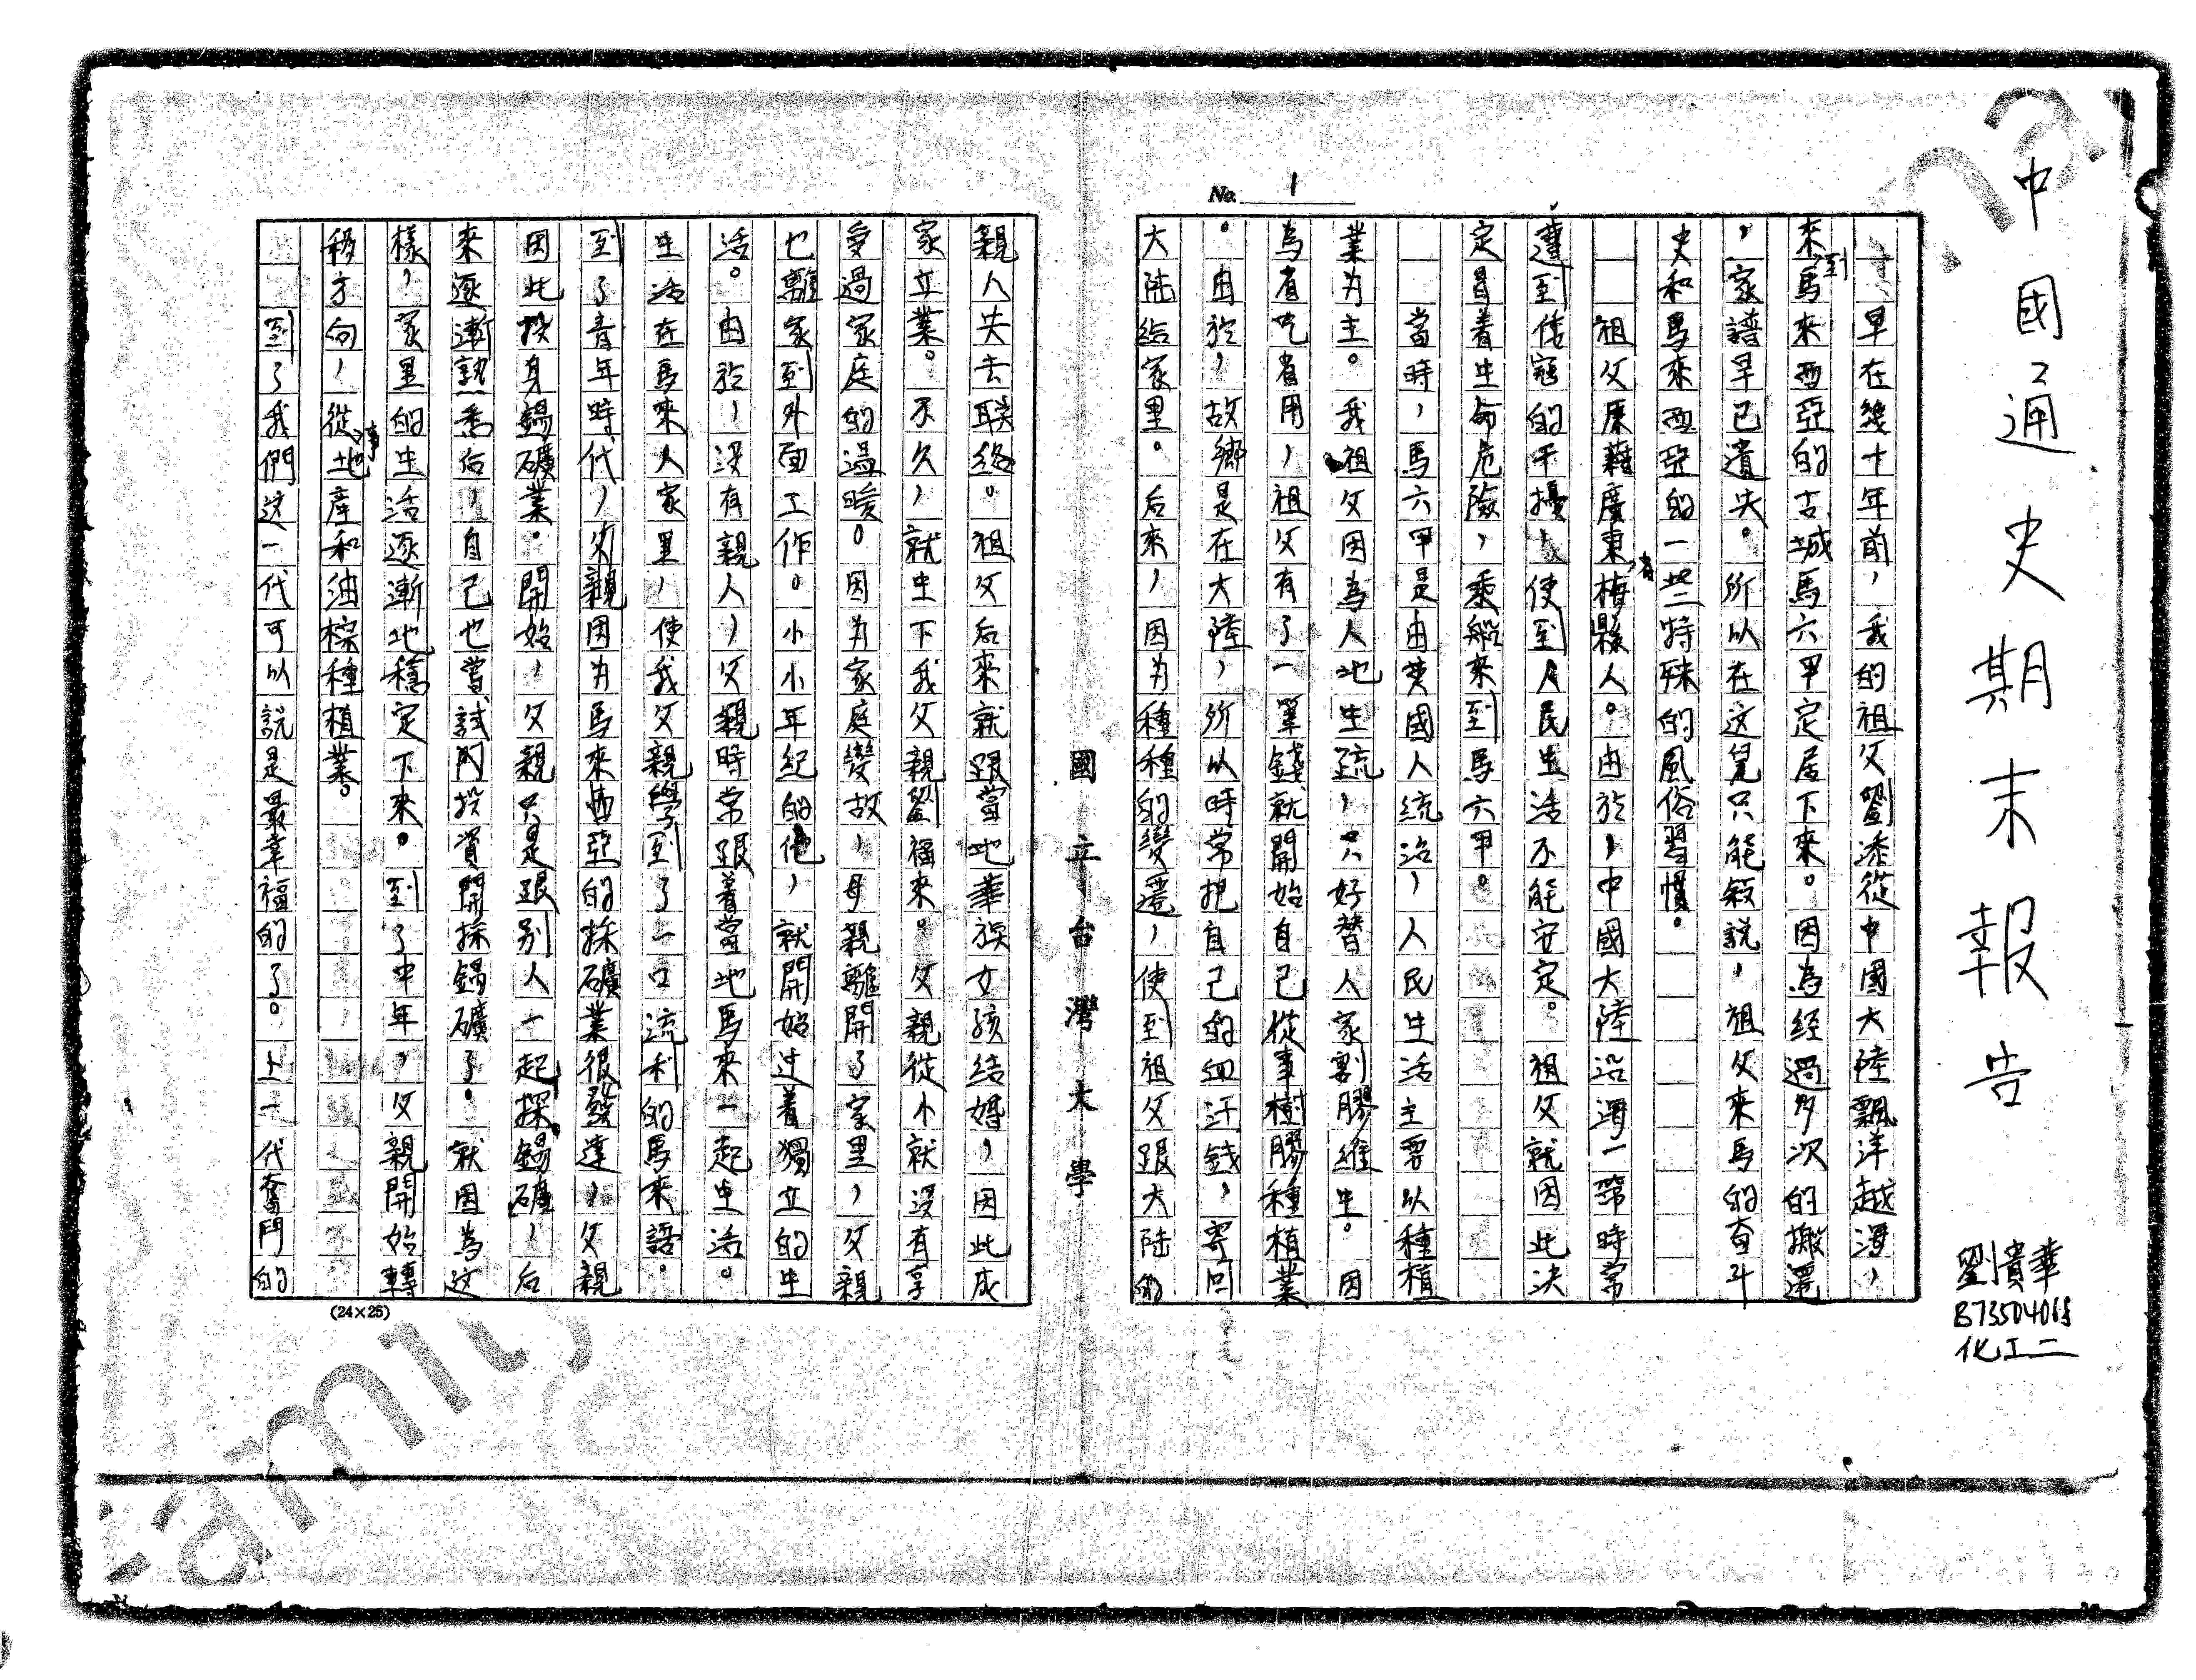 中國通史期末報告
劉貴華
B73504068
化工二
No. 1
早在幾十年前，我的祖父劉添從中國大陸飄洋越海，
來到馬來西亞的古城馬六甲定居下來。因為经過多次的搬遷
，家譜早已遺失。所以在这兒只能敍説，祖父來馬的奋斗
史和馬來西亞的一些特殊的風俗習慣。
祖父原籍廣東省梅縣人。由於，中國大陸沿海一帶時常
遭到倭寇的干擾，使到人民生活不能安定。祖父就因此决
定冒着生命危險，乘船來到馬六甲。
當時，馬六甲是由英國人統治，人民生活主要以種植
業为主。我祖父因為人地生疏，只好替人家割膠維生。因
為省吃省用，祖父有了一筆錢就開始自己從事樹膠種植業
。由於，故鄉是在大陸，所以時常把自己的血汗錢，寄回
大陆给家里。后來，因为種種的變遷，使到祖父跟大陆的
親人失去联络。祖父后來就跟當地華族女孩结婚，因此成
家立業。不久，就生下我父親劉福來。父親從小就没有享
受過家庭的温暖。因为家庭變故，母親離開了家里，父親
也離家到外面工作。小小年纪的他，就開始过着獨立的生
活。由於，没有親人，父親時常跟着當地馬來一起生活。
生活在馬來人家里，使我父親學到了一口流利的馬來語。
到了青年時代，父親因为馬來西亞的採礦業很發達，父親
因此投身錫礦業。開始，父親只是跟别人一起探錫礦，后
來逐漸熟悉后，自己也嘗試投資開採錫礦了。就因為这
樣，家里的生活逐漸地穩定下來。到了中年，父親開始轉
移方向，從事地産和油棕種植業。
到了我們这一代可以説是最幸福的了。上一代奮鬥的
國立台灣大學
(24×25)